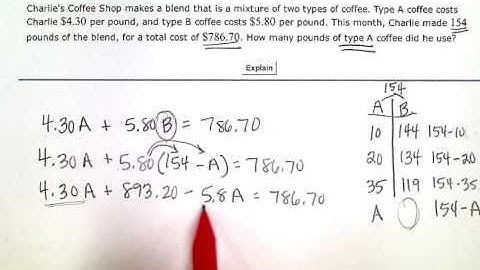 Charlie's Coffee Shop makes a blend that is a mixture of two types of coffee. Type A coffee costs
Charlie $4.30 per pound, and type B coffee costs $5.80 per pound. This month, Charlie made 154
pounds of the blend, for a total cost of $786.70. How many pounds of type A coffee did he use?
Explain
154
A B
4.30A + 5.80B = 786.70
10 144 154-10
4.30A + 5.80(154-A) = 786.70
20 134 154-20
4.30A + 893.20 - 5.8A = 786.70
35 119 154-35
A 154-A